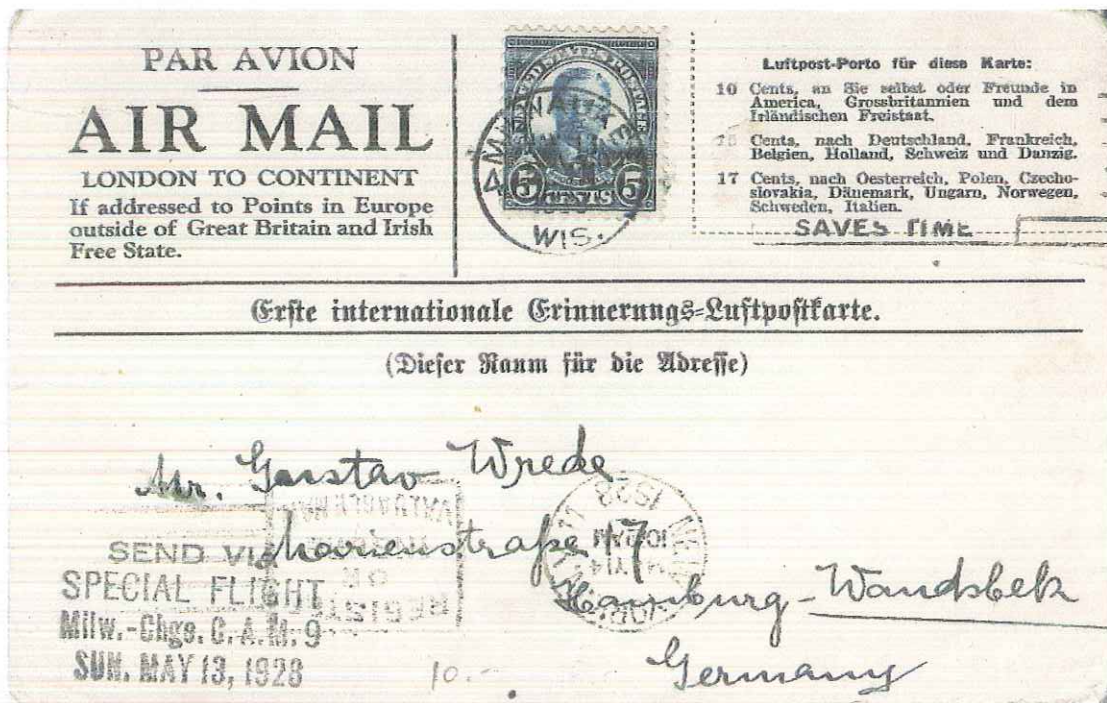 PAR AVION
AIR MAIL
LONDON TO CONTINENT
If addressed to Points in Europe
outside of Great Britain and Irish
Free State.
UNITED STATES POSTAGE
5 CENTS 5
MILWAUKEE
WIS.
Luftpost-Porto für diese Karte:
10 Cents, an Sie selbst oder Freunde in
America, Grossbritannien und dem
Irländischen Freistaat.
15 Cents, nach Deutschland, Frankreich,
Belgien, Holland, Schweiz und Danzig.
17 Cents, nach Oesterreich, Polen, Czecho-
slovakia, Dänemark, Ungarn, Norwegen,
Schweden, Italien.
SAVES TIME
Erste internationale Erinnerungs-Luftpostkarte.
(Dieser Raum für die Adresse)
Mr. Gustav Wrede
Marienstraße 17
Hamburg-Wandsbek
Germany
VALUABLE MAIL
OR
REGISTER
1928
MAY 14
10 AM
SEND VIA
SPECIAL FLIGHT
Milw.-Chgo. C. A. M. 9
SUN. MAY 13, 1928
10.-